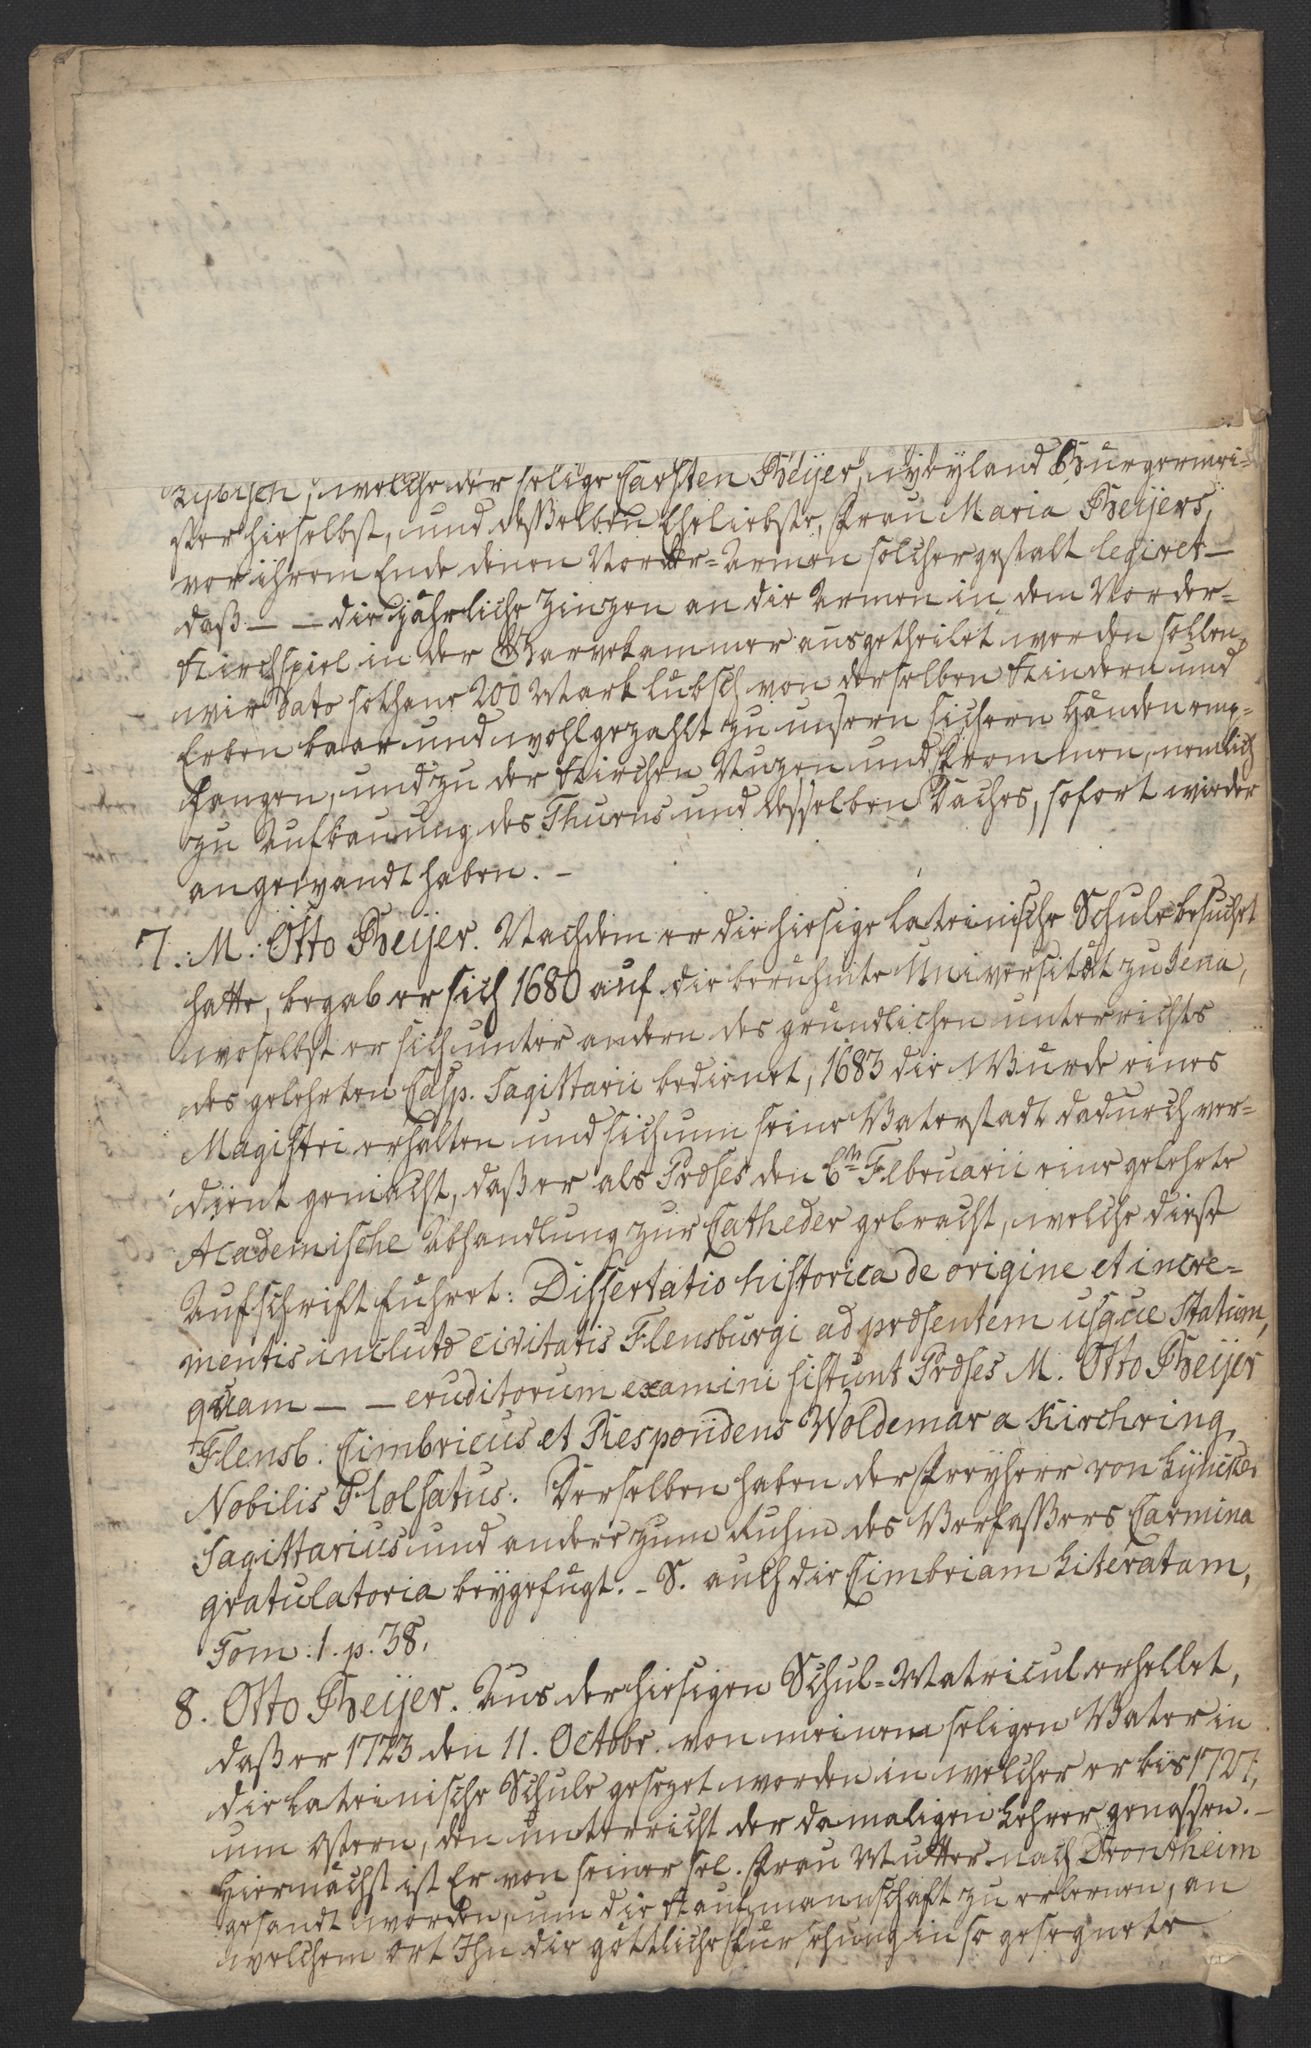 Lybisch, welche der selige Carsten Beijer, weyland Bürgermei=
ster hieselbst, und deßelben Eheliebste, Frau Maria Beijers,
vor ihrem Ende denen Norder-Armen solchergestalt legiret —
daß — — die jährliche Zinzen an die Armen in dem Norder=
Kirchspiel in der Garvekammer ausgetheilet werden sollen,
wir dato sothane 200 Mark lübsch von derselben Kindern und
Erben baar und wohlgezahlt zu unsern sichern Händen emp=
fangen, und zu der Kirchen Nuzen und Frommen, nemlich
zu Aufbauung des Thurns und desselben Daches, sofort wieder
angewandt haben. —
7. M: Otto Beijer. Nachdem er die hiesige lateinische Schule besuchet
hatte, begab er sich 1680 auf die berühmte Universität zu Jena,
woselbst er sich unter andern des gründlichen unterrichts
des gelehrten Casp. Sagittarii bedienet, 1683 die Würde eines
Magistri erhalten und sich um seine Vaterstadt dadurch ver=
dient gemacht, daß er als Præses den 6ten Februarii eine gelehrte
Academische Abhandlung zur Catheder gebracht, welche diese
Aufschrift führet: Dissertatio historica de origine et incre=
mentis inclutæ civitatis Flensburgi ad præsentem usque statum,
quam — — eruditorum examini sistunt Præses M. Otto Beijer
Flensb: Cimbricus et Respondens Woldemar a Kirchring,
Nobilis Holsatus. Derselben haben der Freyherr von Lyncker
Sagittarius und andere zum Ruhm des Verfaßers Carmina
gratulatoria beygefügt. – S. auch die Cimbriam Literatam,
Tom: 1. p. 38.
8. Otto Beijer. Aus der hiesigen Schul=Matricul erhellet,
daß er 1723 den 11. Octobr. von meinem seligen Vater in
die lateinische Schule gesezet worden in welcher er bis 1727,
um Ostern, den unterricht der damaligen Lehrer genossen. —
Hiernächst ist Er von seiner sel. Frau Mutter nach Drontheim
gesandt worden, um die Kaufmannschaft zu erlernen, an
welchem Ort Ihn die göttliche Fürsehung in so gesegnete